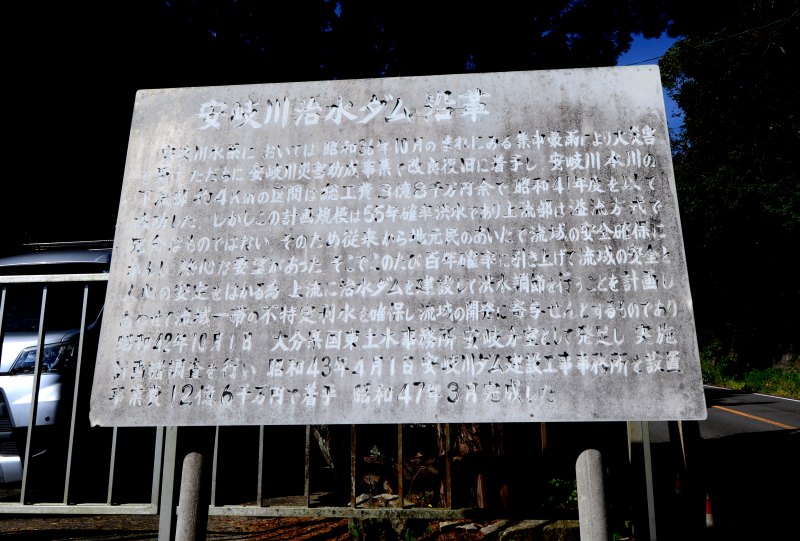 安岐川治水ダム沿革
安岐川水系においては昭和36年10月のまれにある集中豪雨により大災害
ただちに安岐川災害助成事業で改良復旧に着手し安岐川本川の
約4Kmの区間は施工費3億3千万円余で昭和41年度を以て
した しかしこの計画規模は55年確率洪水であり上流部は溢流方式で
なものではない そのため従来から地元民のあいだで流域の安全確保に
熱心な要望があった そこでこのたび百年確率に引き上げて流域の安全と
の安定をはかる為 上流に治水ダムを建設して洪水調節を行うことを計画し
あわせて流域一帯の不特定利水を確保し流域の開発に寄与せんとするものであり
昭和42年10月1日 大分県国東土木事務所安岐分室として発足し 実施
計画諸調査を行い 昭和43年4月1日安岐川ダム建設工事事務所を設置
事業費12億6千万円で着手 昭和47年3月完成した